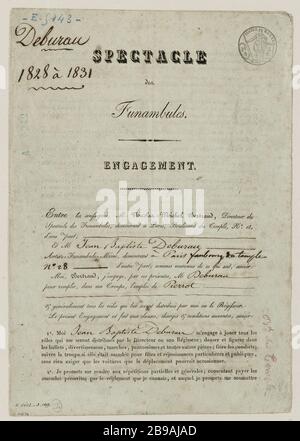 -E. 9143-
Deburau
1828 à 1831
SPECTACLE
des
Funambules.
ENGAGEMENT.
Entre les soussignés M. Nicolas-Michel Bertrand, Directeur du
Spectacle des Funambules, demeurant à Paris, Boulevard du Temple, N° 18,
d'une part;
Et M Jean Baptiste Deburau
Artiste-Funambule-Mime, demeurant à Paris faubourg du temple
N° 28 d'autre part; sommes convenus de ce qui suit, savoir:
Moi Bertrand, j'engage, par ces présentes, M Deburau
pour remplir, dans ma Troupe, l'emploi de Pierrot
Et généralement tous les rôles qui lui seront distribués par moi ou le Régisseur.
Le présent Engagement est fait aux clauses, charges et conditions suivantes, savoir:
1°. Moi Jean Baptiste Deburau m'engage à jouer tous les
rôles qui me seront distribués par le Directeur ou son Régisseur; danser et figurer dans
les ballets, divertissemens, marches, pantomimes et toutes autres pièces; faire les combats;
suivre la troupe si elle était mandée pour fêtes et réjouissances particulières et publiques,
sans rien exiger que les voitures que le déplacement pourrait occasionner.
2°. Je promets me rendre aux répétitions partielles et générales; consentant payer les
amendes prescrites par le règlement que je connais, et auquel je promets me soumettre
alamy